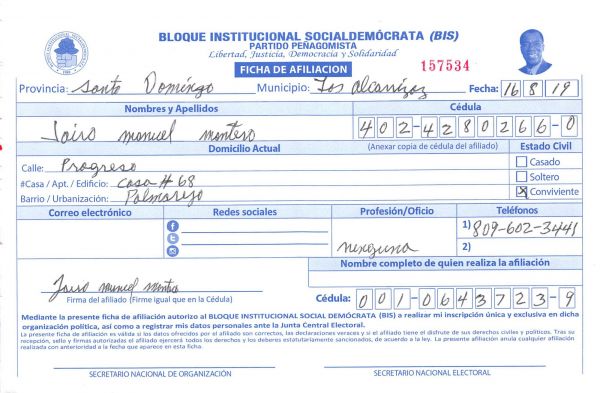 BLOQUE INSTITUCIONAL SOCIALDEMÓCRATA (BIS)
PARTIDO PEÑAGOMISTA
Libertad, Justicia, Democracia y Solidaridad
FICHA DE AFILIACION
157534
Provincia: Santo Domingo Municipio: Los alcarrizoz Fecha: 16 8 19
Nombres y Apellidos Cédula
Jairo manuel montero 402-4280266-0
Domicilio Actual (Anexar copia de cédula del afiliado) Estado Civil
Calle: Progreso Casado
#Casa / Apt. / Edificio: casa # 68 Soltero
Barrio / Urbanización: Palmarejo X Conviviente
Correo electrónico Redes sociales Profesión/Oficio Teléfonos
1) 809-602-3441
ninguna 2)
Nombre completo de quien realiza la afiliación
Jairo manuel montero
Firma del afiliado (Firme igual que en la Cédula) Cédula: 001-0643723-9
Mediante la presente ficha de afiliación autorizo al BLOQUE INSTITUCIONAL SOCIAL DEMÓCRATA (BIS) a realizar mi inscripción única y exclusiva en dicha
organización política, así como a registrar mis datos personales ante la Junta Central Electoral.
La presente ficha de afiliación es válida si los datos ofrecidos por el afiliado son correctas, las declaraciones veraces y si el afiliado tiene el disfrute de sus derechos civiles y políticos. Tras su
recepción, sello y firmas autorizadas el afiliado ejercerá todos los derechos y los deberes estatutariamente sancionados, de acuerdo a la ley. La presente afiliación anula cualquier afiliación
realizada con anterioridad a la fecha que aparece en esta ficha.
SECRETARIO NACIONAL DE ORGANIZACIÓN SECRETARIO NACIONAL ELECTORAL